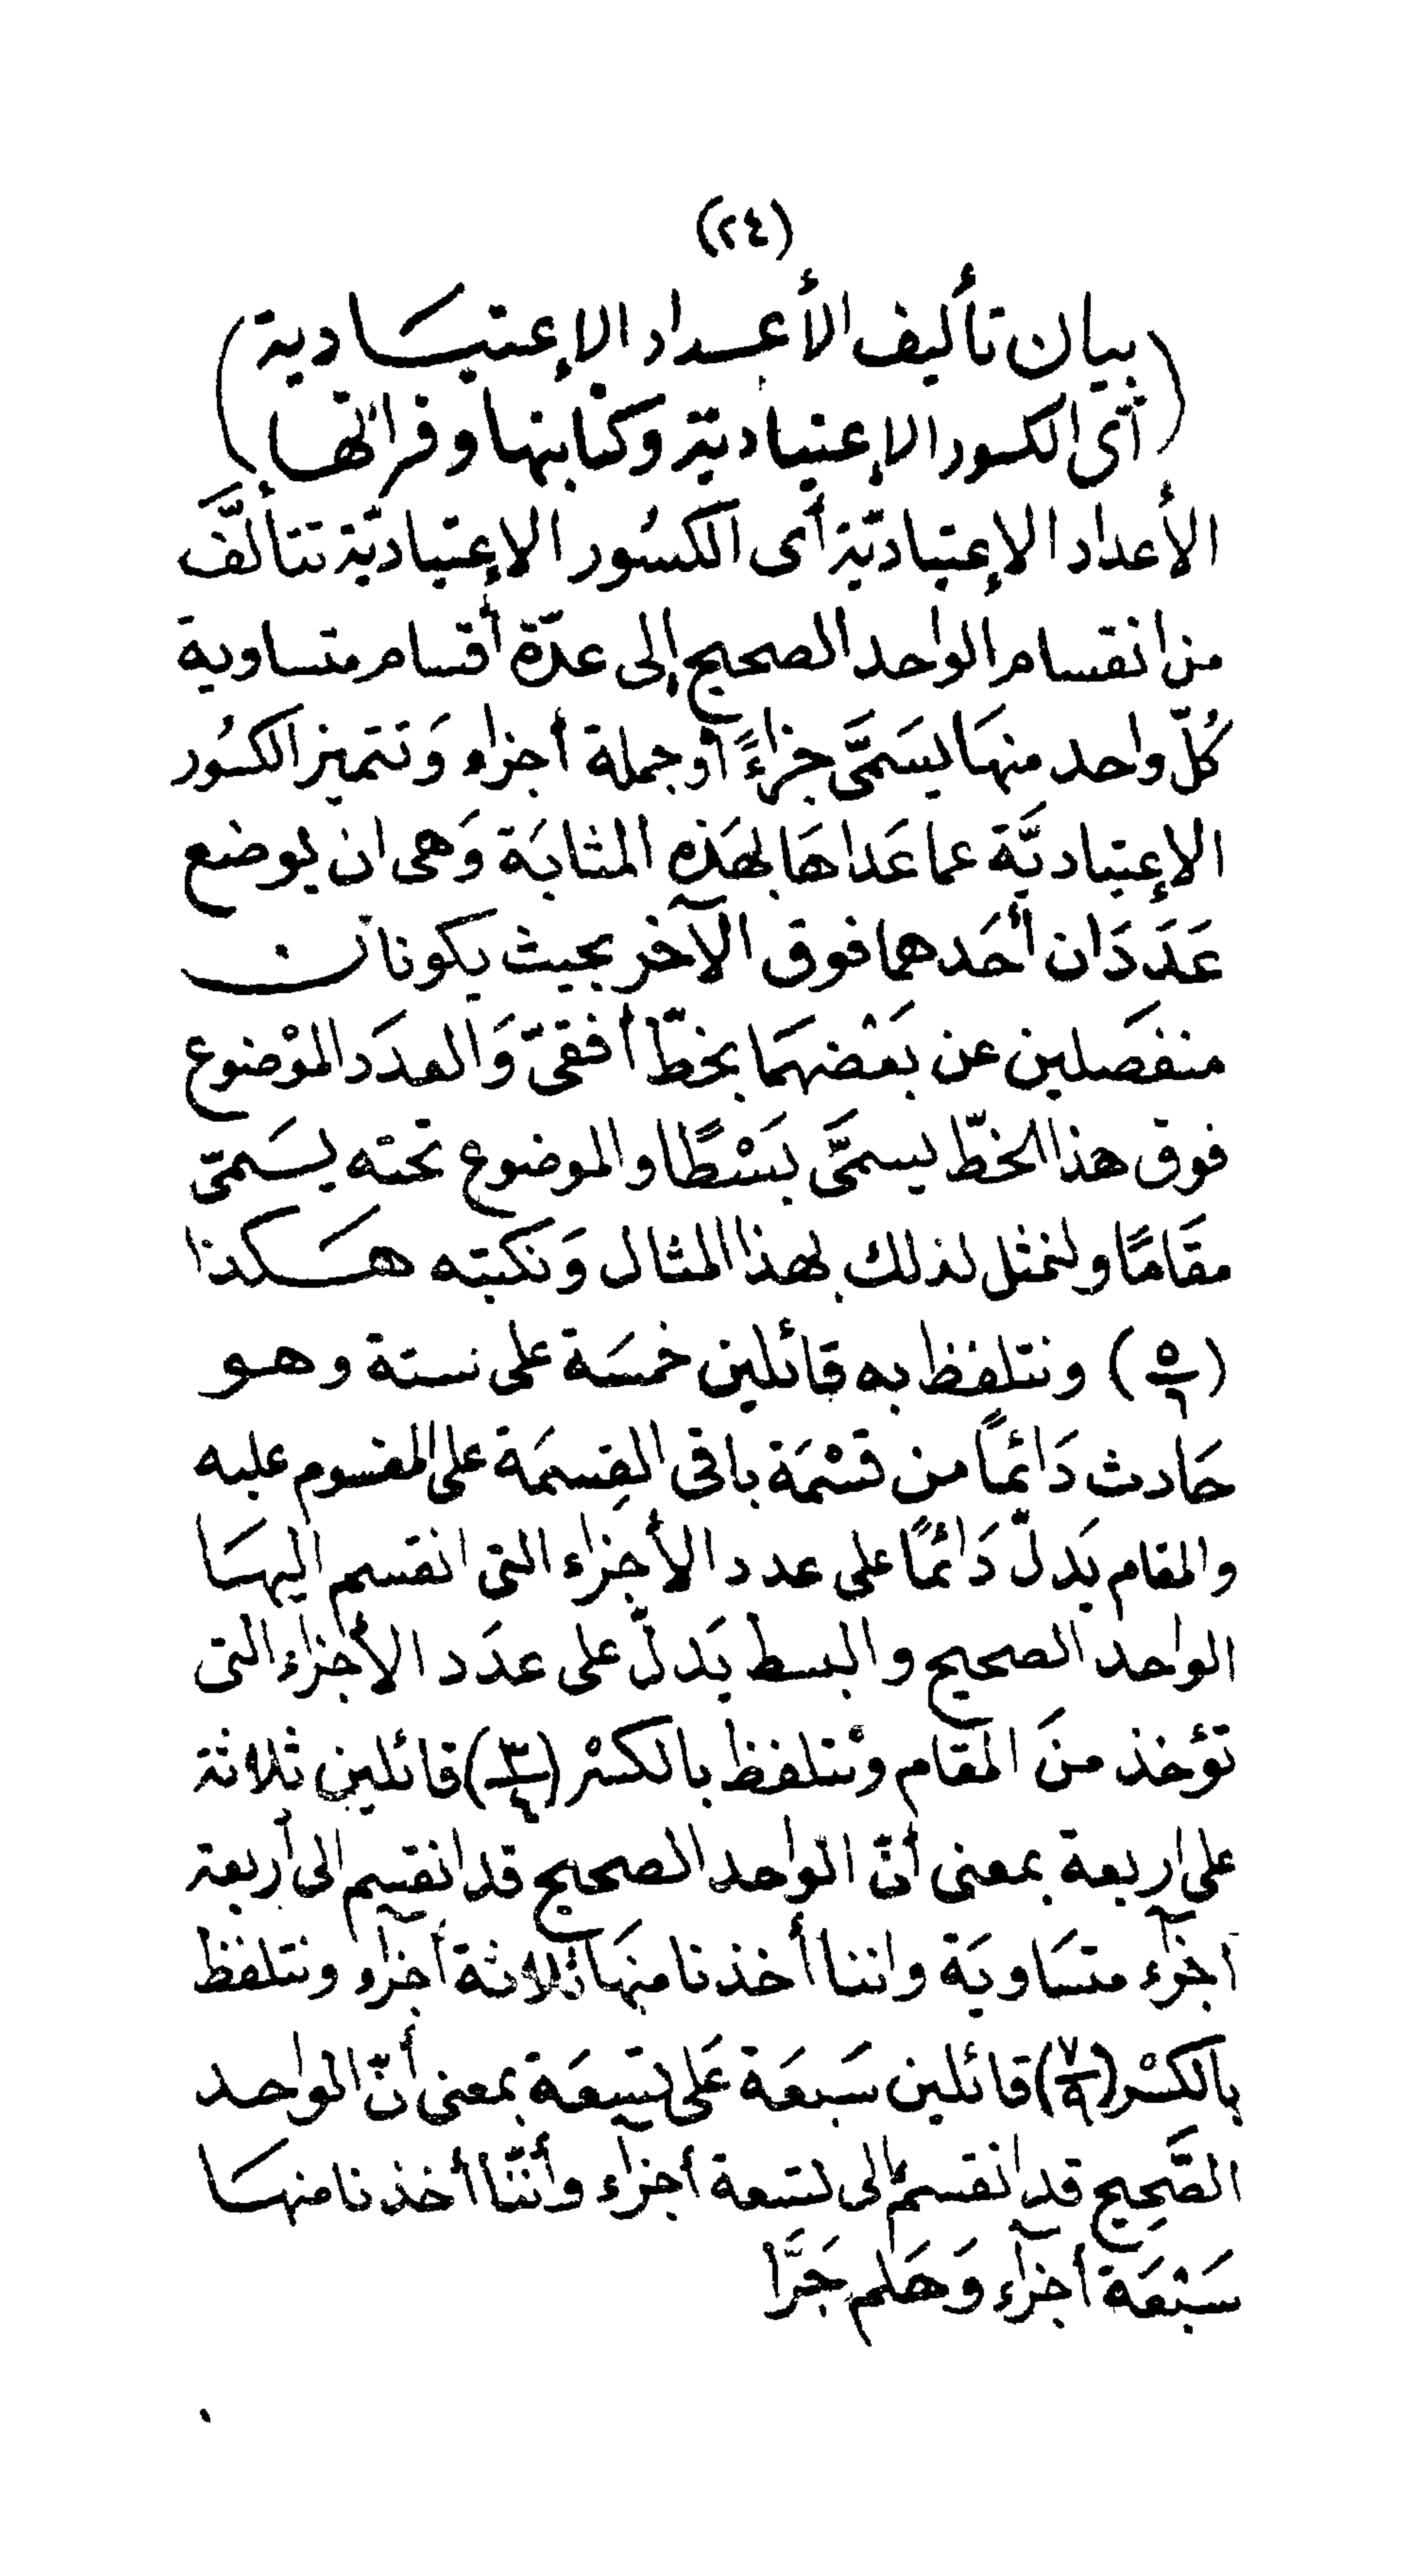 (٢٤)
(بيان تأليف الأعداد الإعتيادية
أى الكسور الإعتياديّة وكتابتها وقرائتها)
الأعداد الإعتياديّة أى الكسُور الإعتياديّة تتألَّف
من انقسام الواحد الصحيح إلى عدّة أقسام متساوية
كُلّ واحد منهَا يسَمَّى جزاءً أو جملة أجزاء وَتتميز الكسُور
الإعتياديَّة عما عَداهَا بهَذه المثابَة وَهى ان يوضع
عَدَدَان أحَدهما فوق الآخر بحيث يكونان
منفصَلين عن بَعْضهمَا بخطّ أفقىّ وَالعدَد الموْضوع
فوق هذا الخطّ يسمَّى بَسْطًا والموضوع تحته يسَمّى
مقَامًا ولنمثل لذلك بهذا المثال وَنكتبه هَكذا
(٥/٦) ونتلفظ به قائلين خمسَة على ستة وهو
حَادث دَائمًا من قسْمَة باقى القِسمَة على المقسوم عليه
والمقام يَدلّ دَائمًا على عدد الأجزاء التى انقسم اليهَا
الواحد الصحيح والبسط يَدلّ على عدَد الأجزاء التى
تؤخذ منَ المقام ونتلفظ بالكسْر (٣/٤) قائلين ثلاثة
على اربعة بمعنى أنّ الواحد الصحيح قد انقسم الى أربعة
اجزآء متسَاويَة واننا أخذنا منهَا ثلاثة أجزآء ونتلفظ
بالكسْر (٧/٩) قائلين سَبعَة عَلى تسِعَة بمعنى أنّ الواحد
الصَّحِيح قد انقسم الى تسعة أجزآء وأنّنا أخذنا منهَا
سَبْعَة أجزآء وَهَلم جَرَّا